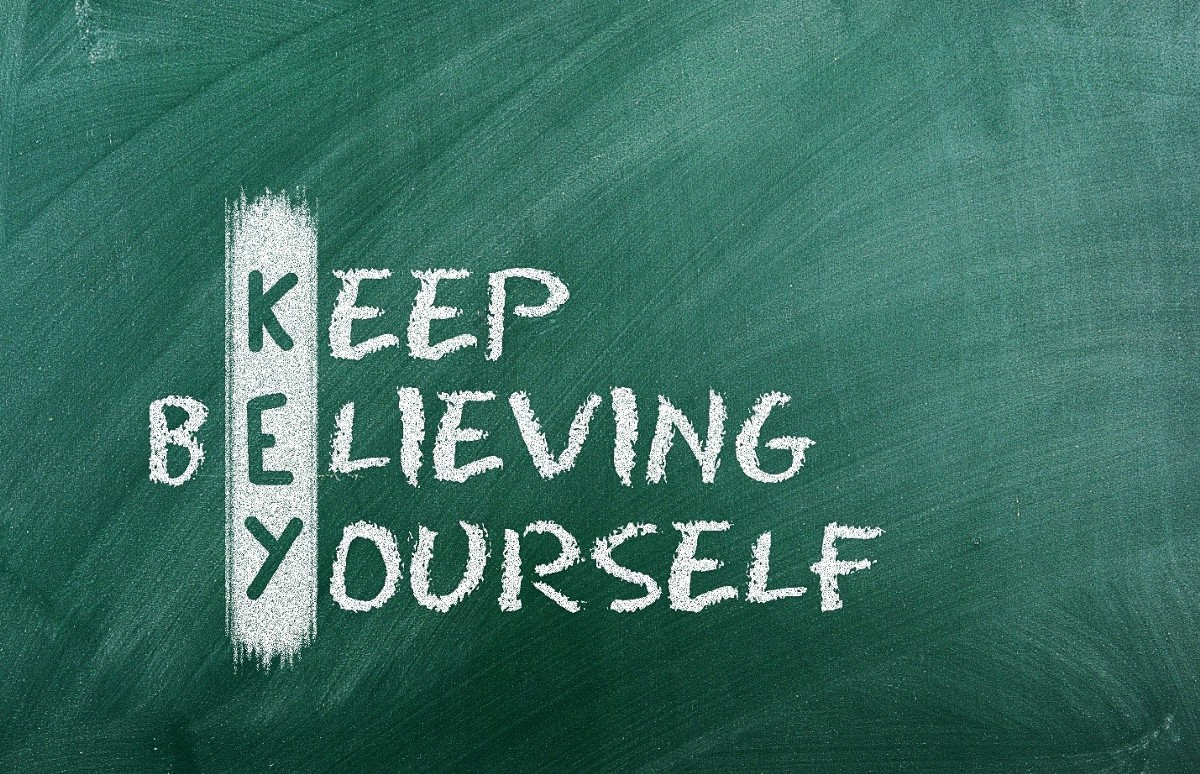 KEEP
BELIEVING
YOURSELF